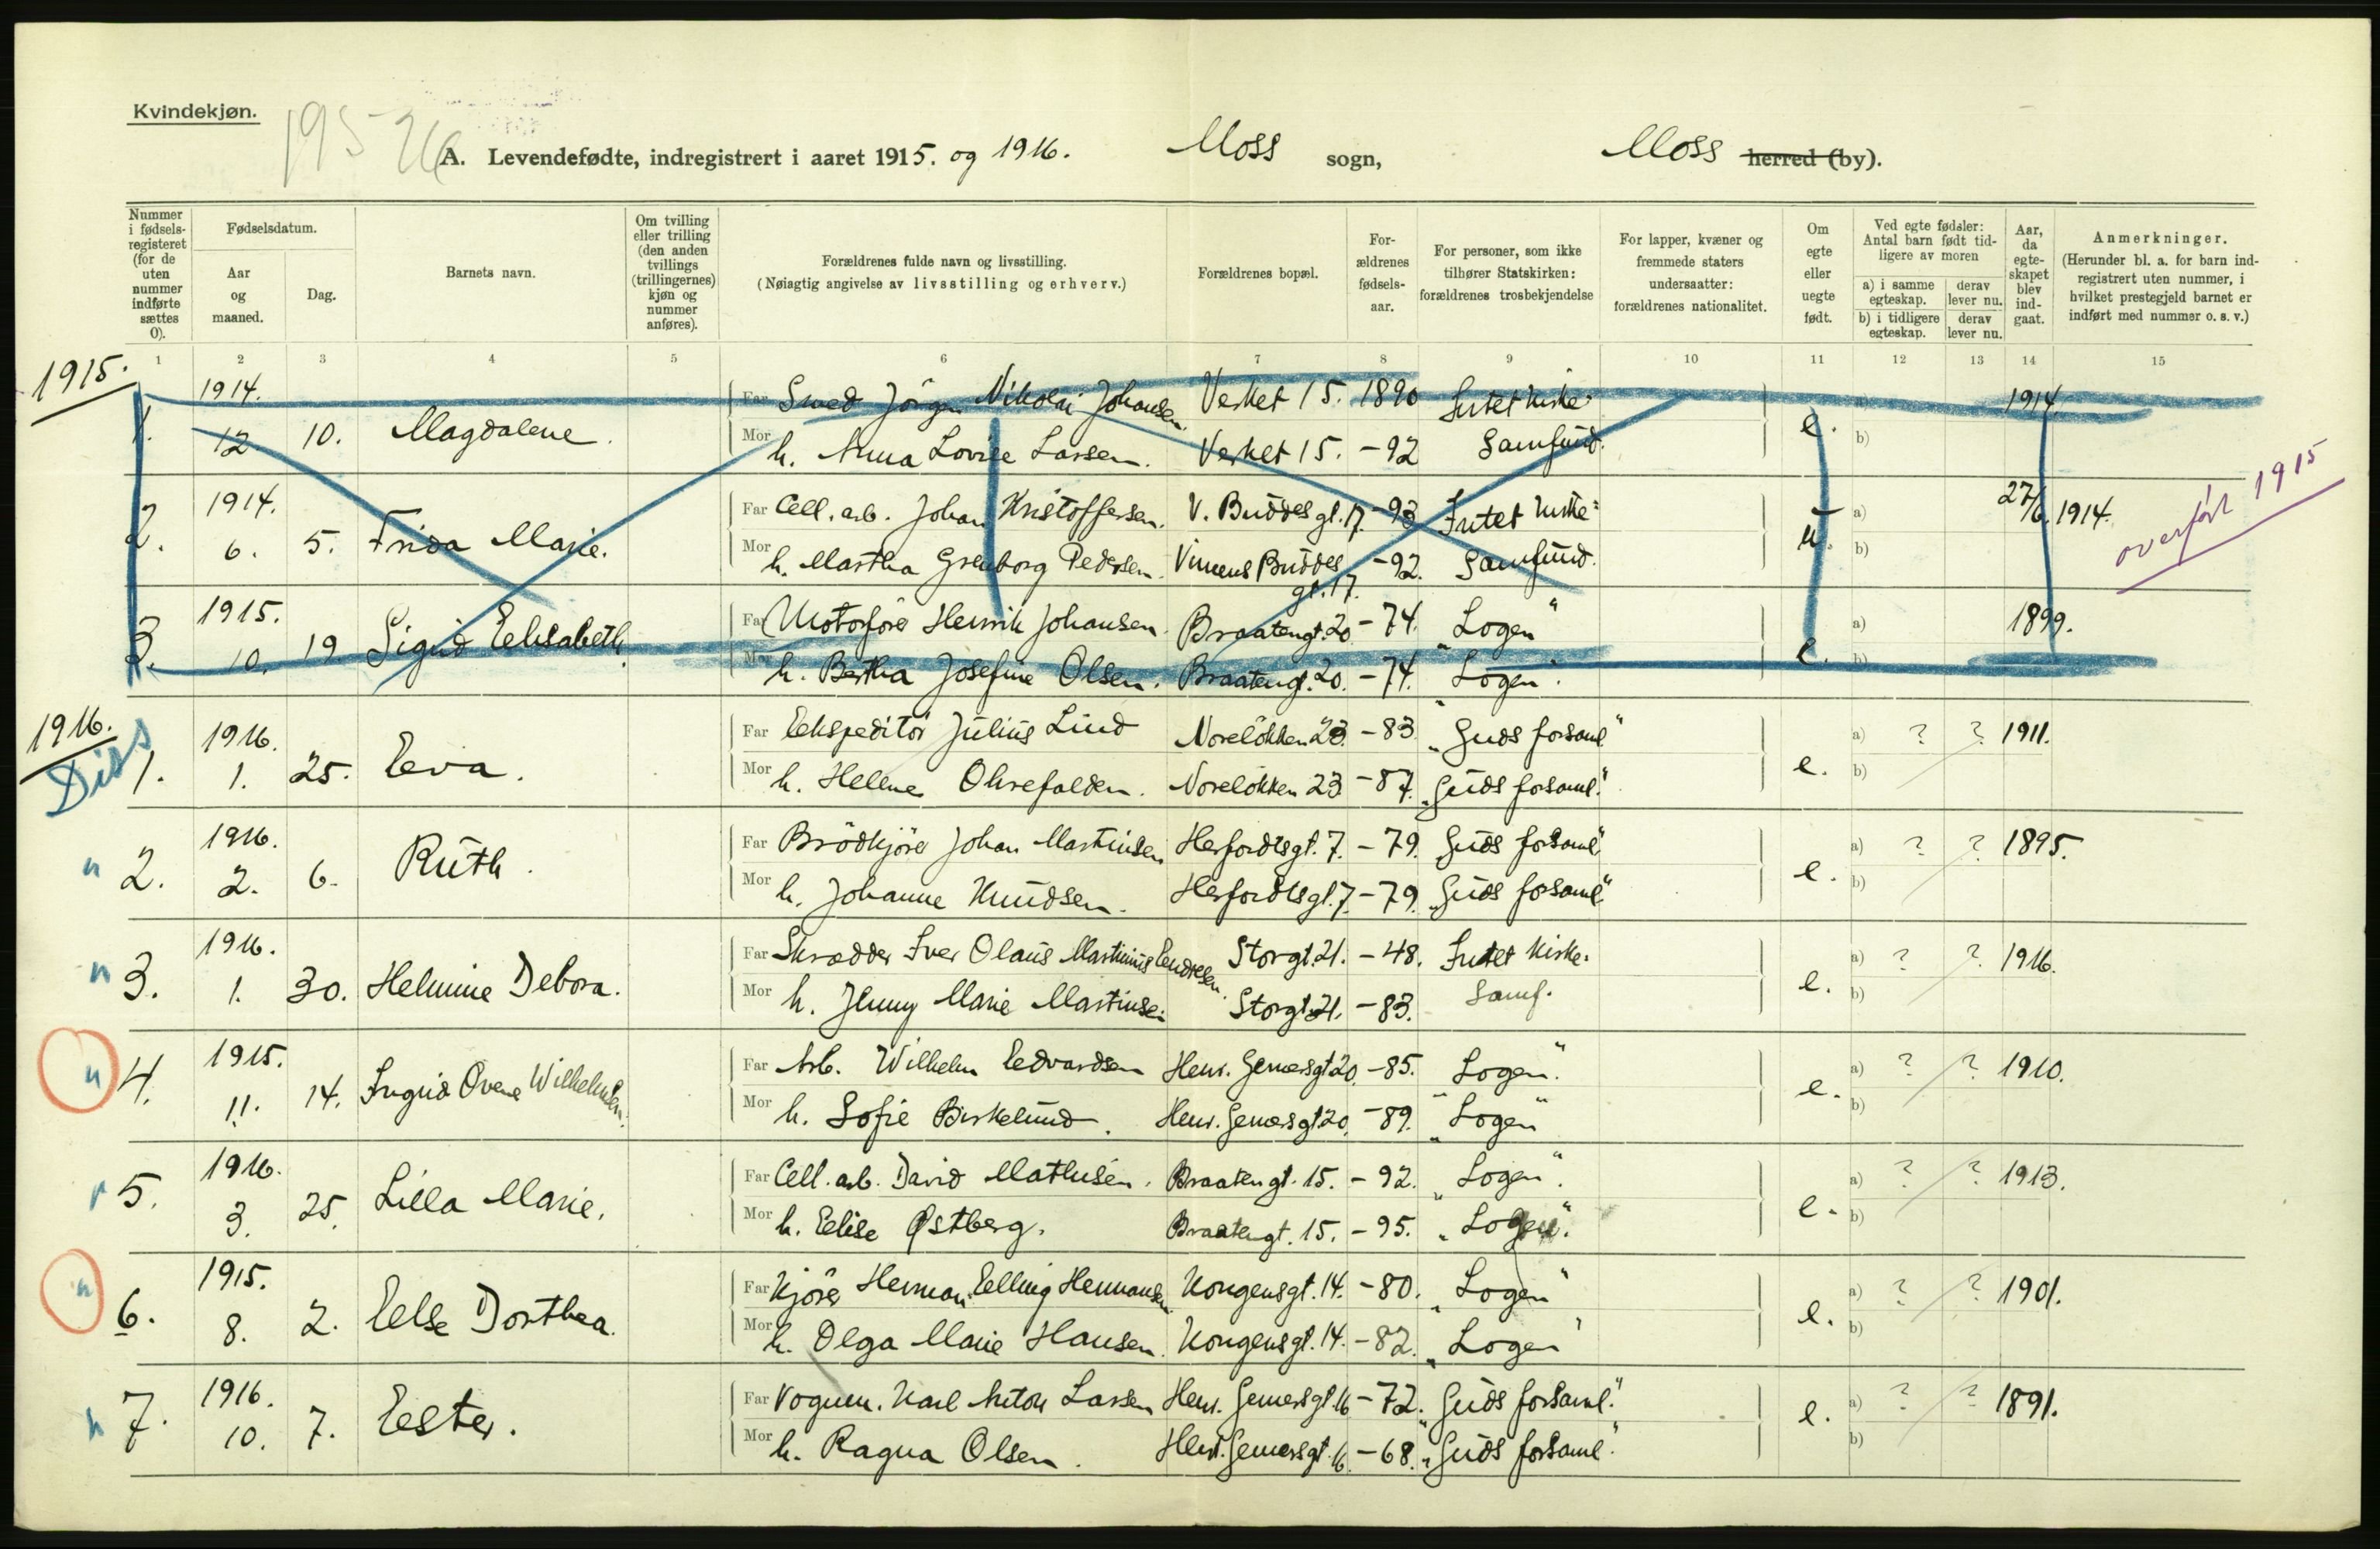 Kvindekjøn.
195
A. Levendefødte, indregistrert i aaret 1915. og 1916. Moss sogn, Moss herred (by).
Nummer i fødsels-registeret (for de uten nummer indførte sættes 0).
Fødselsdatum.
Aar og maaned.
Dag.
Barnets navn.
Om tvilling eller trilling (den anden tvillings (trillingernes) kjøn og nummer anføres).
Forældrenes fulde navn og livsstilling.
(Nøiagtig angivelse av livsstilling og erhverv.)
Forældrenes bopæl.
For-ældrenes fødsels-aar.
For personer, som ikke tilhører Statskirken: forældrenes trosbekjendelse
For lapper, kvæner og fremmede staters undersaatter: forældrenes nationalitet.
Om egte eller uegte født.
Ved egte fødsler: Antal barn født tid-ligere av moren
a) i samme egteskap.
b) i tidligere egteskap.
derav lever nu.
derav lever nu.
Aar, da egte-skapet blev ind-gaat.
Anmerkninger.
(Herunder bl. a. for barn ind-registrert uten nummer, i hvilket prestegjeld barnet er indført med nummer o. s. v.)
1 2 3 4 5 6 7 8 9 10 11 12 13 14 15
1915.
1914. Far Smed Jörgen Nikolai Johansen Verket 15. 1890 Intet kirke= a) 1914.
1. 12. 10. Magdalene. Mor h. Anna Lovise Larsen. Verket 15. -92 Samfund. e. b)
1914. Far Cell. arb. Johan Kristoffersen. V. Buddes gt. 17. -93 Intet kirke= a) 27/6. 1914. overført 1915
2. 6. 5. Frida Marie. Mor h. Martha Grenborg Pedersen. Vincens Buddes gt. 17. -92. Samfund. u. b)
1915. Far Motorförer Henrik Johansen. Braatengt. 20 -74. "Logen" a) 1899.
3. 10. 19 Sigrid Eelisabeth. Mor h. Bertha Josefine Olsen. Braatengt. 20. -74. "Logen". e. b)
1916.
Diss
1916. Far Eekspeditör Julius Lind Noreløkken 23. -83. "Guds forsaml." a) ? ? 1911.
1. 1. 25. Eeva. Mor h. Helene Olrefalden. Noreløkken 23 -87. "Guds forsaml." e. b)
1916. Far Brödkjörer Johan Martinsen Herfordtsgt. 7. -79. Guds forsaml" a) ? ? 1895.
" 2. 2. 6. Ruth. Mor h. Johanne Knudsen. Herfordtsgt. 7. -79. "Guds forsaml." e. b)
1916. Far Skrædder Iver Olaus Martinius Eendresen. Storgt. 21. -48. Intet kirke= a) ? ? 1916.
" 3. 1. 30. Helmine Debora. Mor h. Jenny Marie Martinsen Storgt. 21. -83. Samf. e. b)
1915. Far Arb. Wilhelm Eedvardsen Henr. Gernersgt 20. -85. Logen". a) ? ? 1910.
" 4. 11. 14. Ingrid Ovene Wilhelmsen. Mor h. Sofie Birkelund. Henr. Gernersgt 20. -89. "Logen" e. b)
1916. Far Cell. arb. David Mathisen. Braatengt. 15. -92. Logen". a) ? ? 1913.
" 5. 3. 25. Lilla Marie. Mor h. Eelise Østberg. Braatengt. 15. -95. "Logen". e. b)
1915. Far Kjörer Herman Eelling Hermansen. Kongensgt. 14. -80. "Logen" a) ? ? 1901.
" 6. 8. 2. Eelse Dorthea. Mor h. Olga Marie Hansen. Kongensgt. 14. -82. "Logen" e. b)
1916. Far Vognm. Karl Anton Larsen Henr. Gernersgt. 16 -72. Guds forsaml." a) ? ? 1891.
" 7. 10. 7. Eester. Mor h. Ragna Olsen. Henr. Gernersgt. 16. -68. "Guds forsaml". e. b)